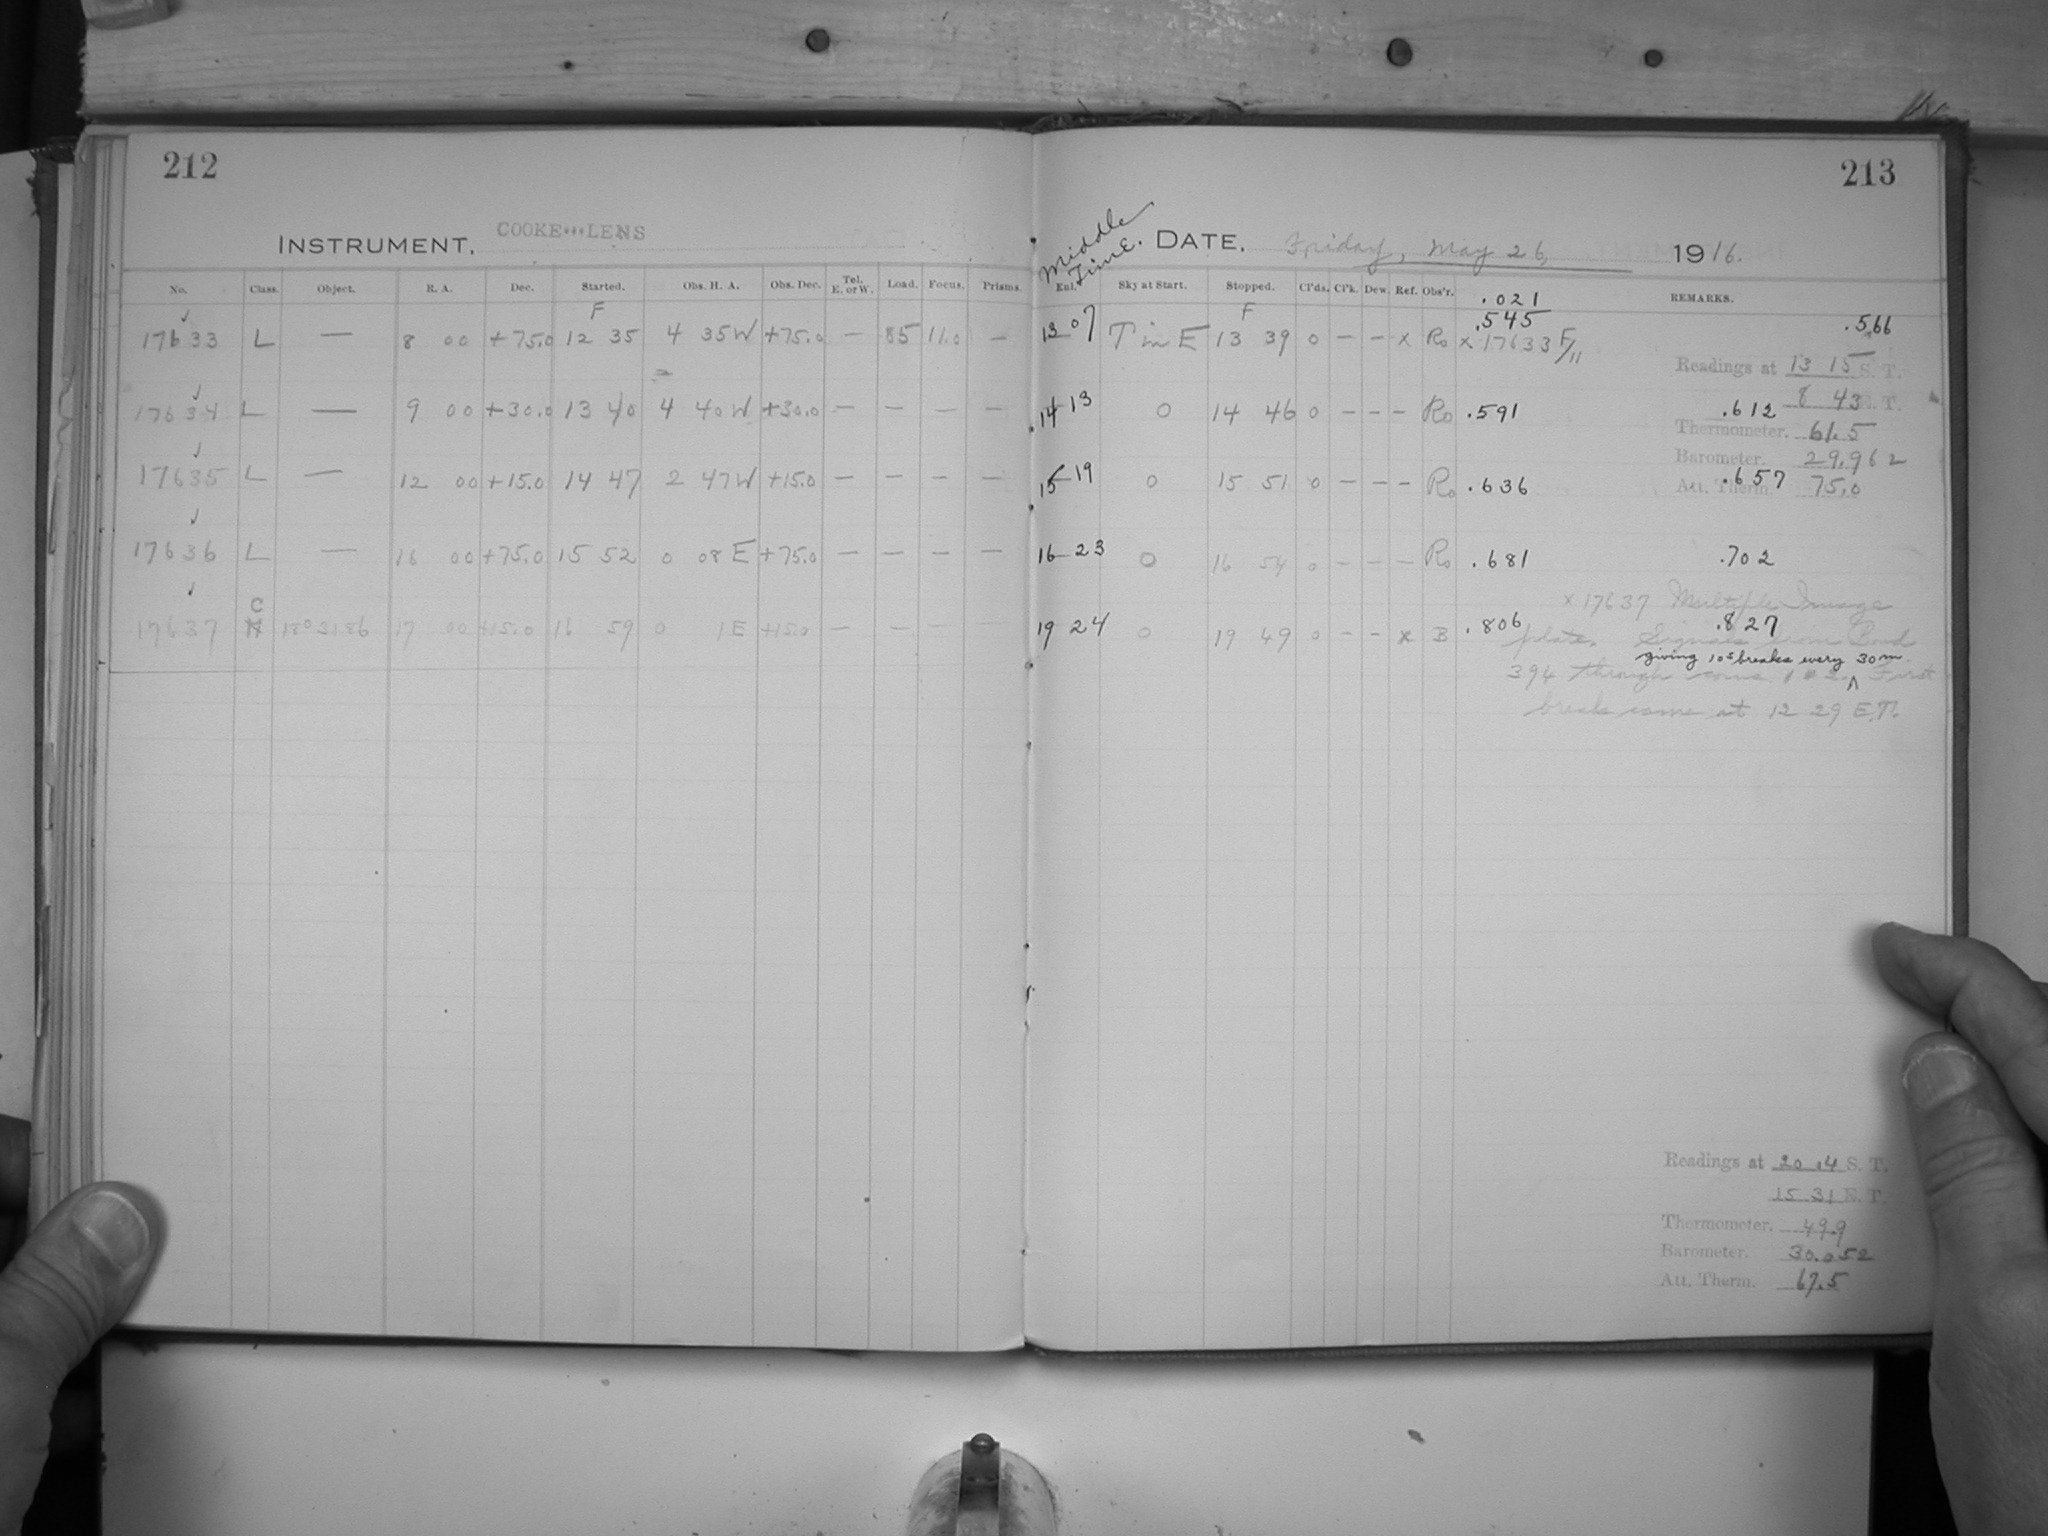 212
213
INSTRUMENT. COOKE***LENS
Middle Time.
DATE. Friday, May 26, 1916.
No. Class. Object. R. A. Dec. Started. Obs. H. A. Obs. Dec. Tel. E. or W. Load. Focus. Prisms. Enl. Sky at Start. Stopped. Cl'ds. Cl'k. Dew. Ref. Obs'r. REMARKS.
.021
F F .545 .566
17633 L — 8 00 +75.0 12 35 4 35W +75.0 — 85 11.0 — 13 07 T in E 13 39 0 — — x Ro x 17633 F/11
Readings at 13 15 S. T.
8 43 E. T.
17634 L — 9 00 +30.0 13 40 4 40W +30.0 — — — — 14 13 0 14 46 0 — — — Ro .591 .612
Thermometer. 61.5
Barometer. 29.962
17635 L — 12 00 +15.0 14 47 2 47W +15.0 — — — — 15 19 0 15 51 0 — — — Ro .636 .657
Att. Therm. 75.0
17636 L — 16 00 +75.0 15 52 0 08E +75.0 — — — — 16 23 0 16 54 0 — — — Ro .681 .702
x 17637 Multiple Image
C
17637 1803186 17 00 +15.0 16 59 0 1E +15.0 — — — — 19 24 0 19 49 0 — — x B .806 .827
plate. Signals from Bond
giving 10s breaks every 30m
394 through First
break came at 12 29 E.T.
Readings at 20.4 S. T.
15 31 E. T.
Thermometer. 49.9
Barometer. 30.052
Att. Therm. 67.5